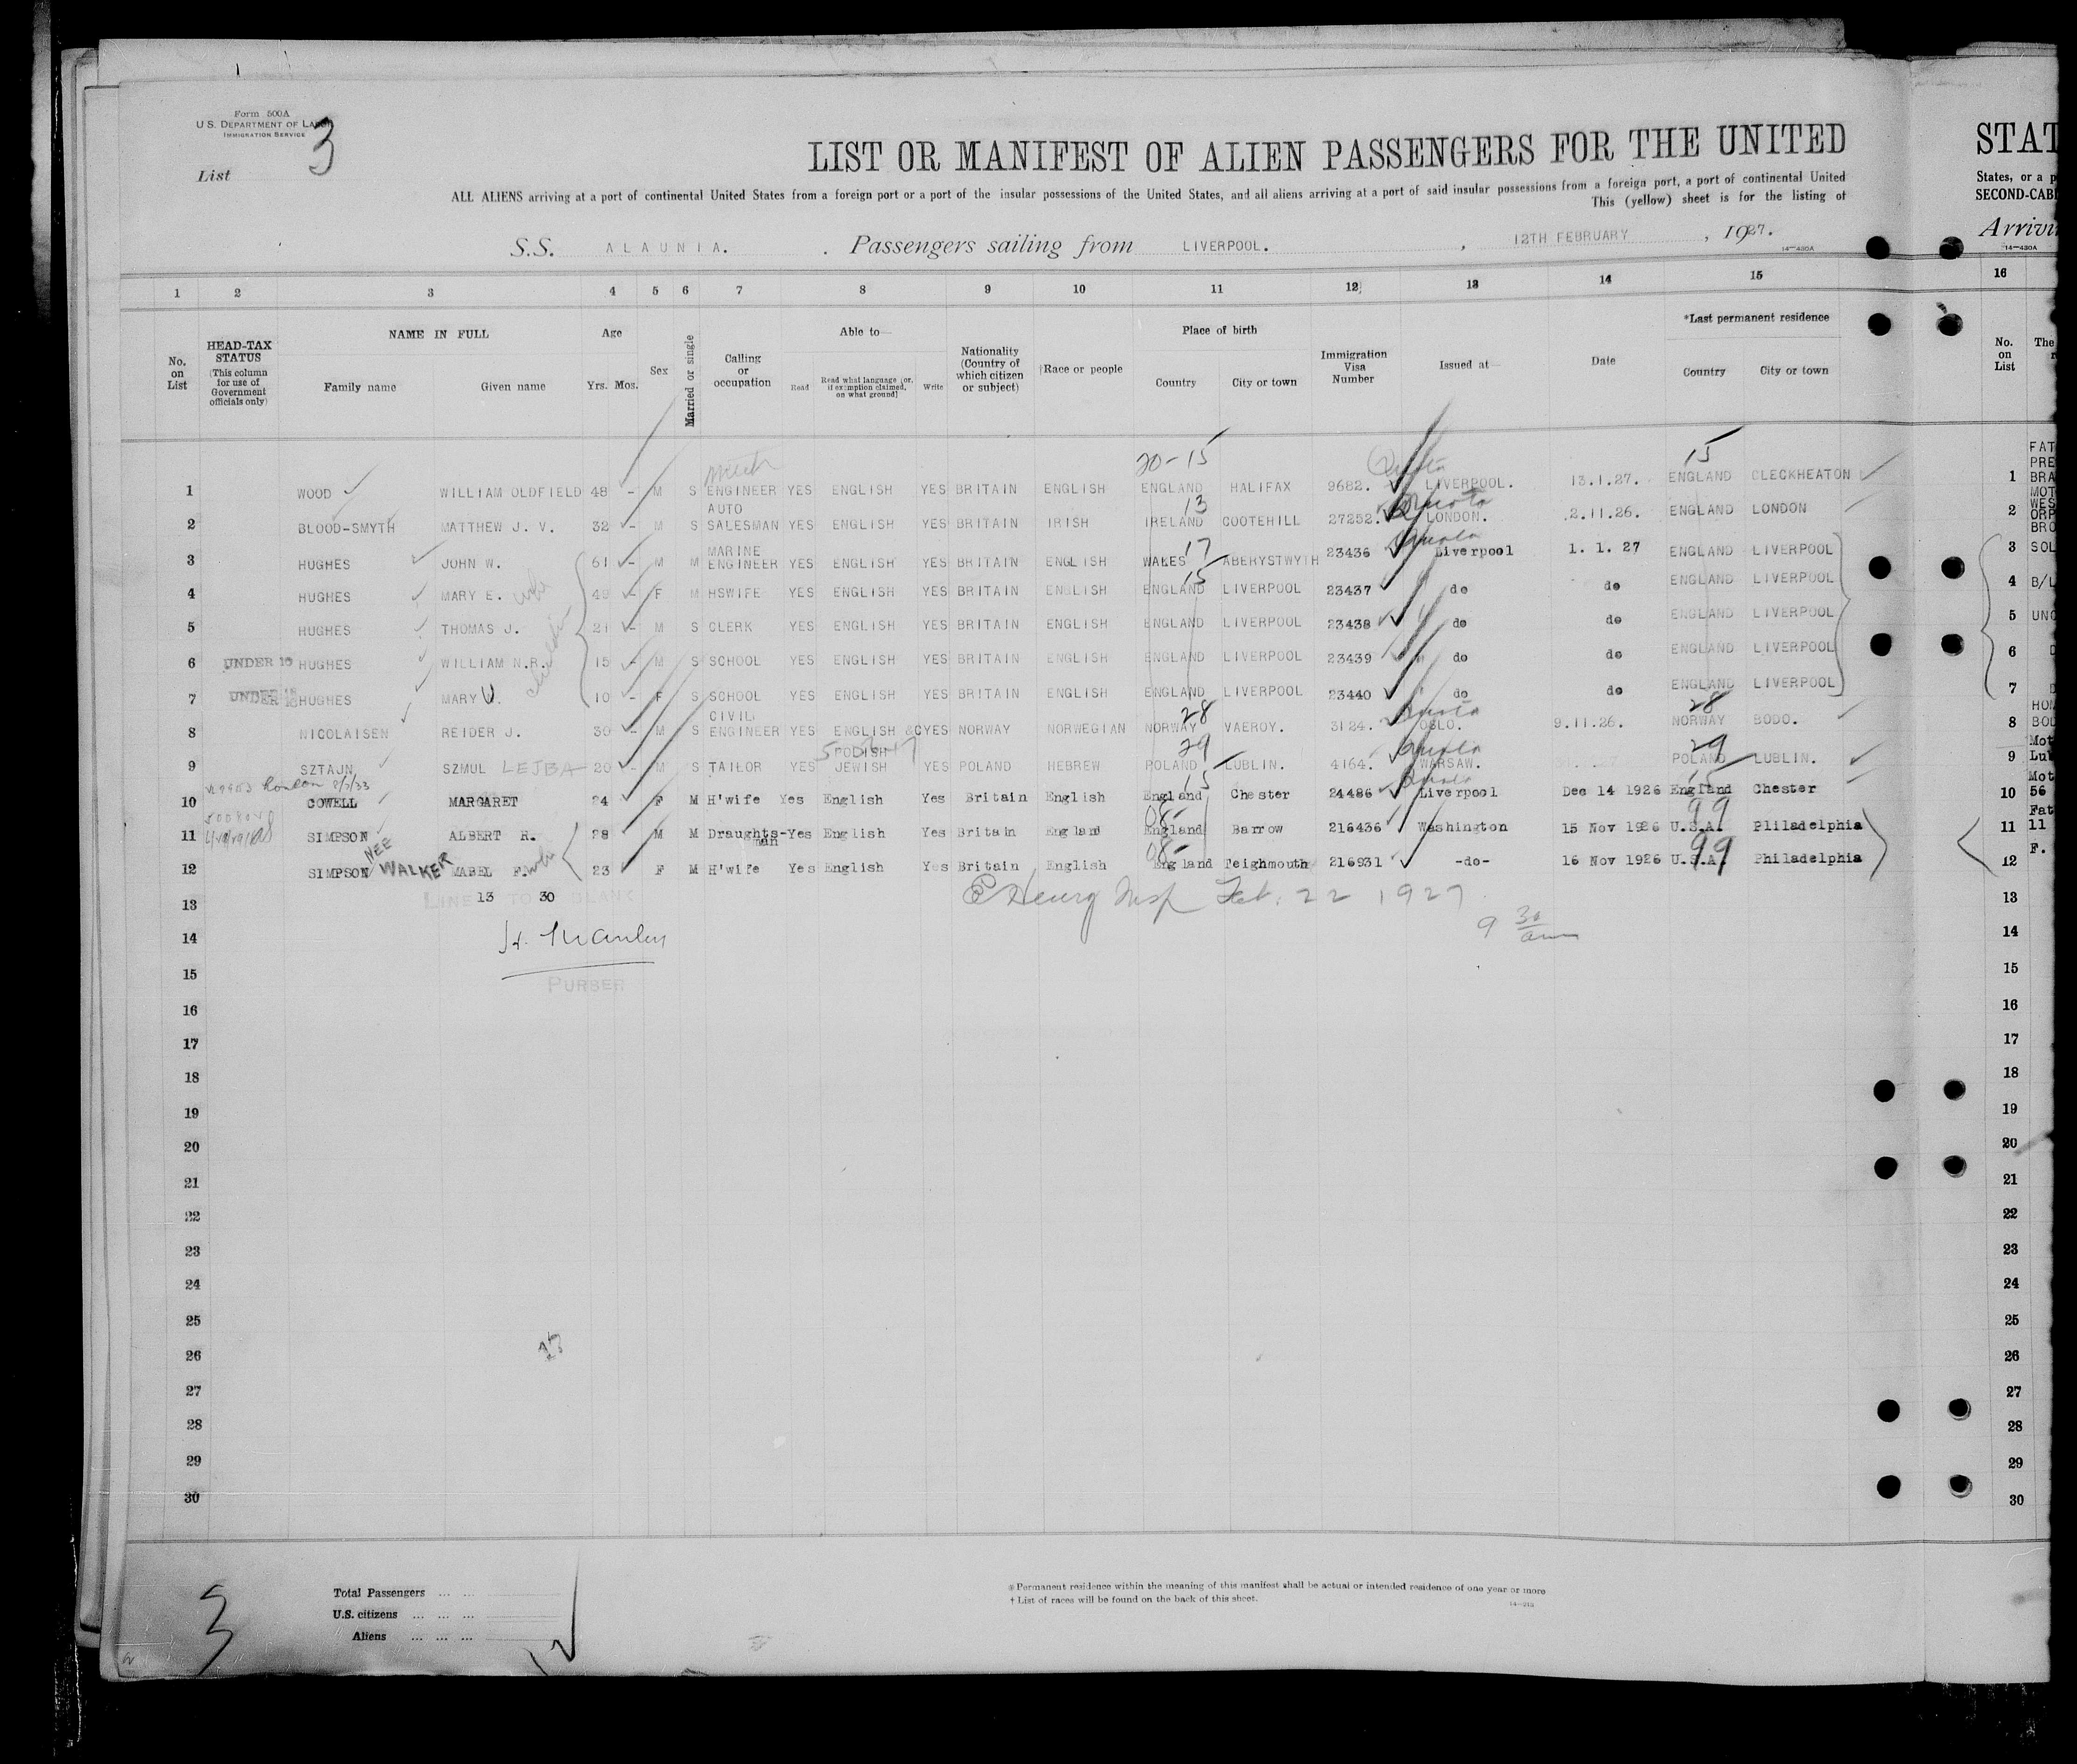 Form 500A
U.S. DEPARTMENT OF LABOR
IMMIGRATION SERVICE
List 3
LIST OR MANIFEST OF ALIEN PASSENGERS FOR THE UNITED
STAT
ALL ALIENS arriving at a port of continental United States from a foreign port or a port of the insular possessions of the United States, and all aliens arriving at a port of said insular possessions from a foreign port, a port of continental United
States, or a p
This (yellow) sheet is for the listing of
SECOND-CAB
S.S. ALAUNIA. Passengers sailing from LIVERPOOL. , 12TH FEBRUARY , 1927.
Arrivi
14—430A
14—430A
1 2 3 4 5 6 7 8 9 10 11 12 13 14 15 16
No. on List
HEAD-TAX STATUS (This column for use of Government officials only)
NAME IN FULL
Family name Given name
Age
Yrs. Mos.
Sex
Married or single
Calling or occupation
Able to—
Read Read what language (or, if exemption claimed, on what ground) Write
Nationality (Country of which citizen or subject)
†Race or people
Place of birth
Country City or town
Immigration Visa Number
Issued at—
Date
*Last permanent residence
Country City or town
No. on List
The
20-15 Quota 15
FAT
PRE
1 WOOD WILLIAM OLDFIELD 48 - M S ENGINEER YES ENGLISH YES BRITAIN ENGLISH ENGLAND HALIFAX 9682. LIVERPOOL. 13.1.27. ENGLAND CLECKHEATON 1 BRA
AUTO 13 Quota
MOT
WES
2 BLOOD-SMYTH MATTHEW J. V. 32 - M S SALESMAN YES ENGLISH YES BRITAIN IRISH IRELAND COOTEHILL 27252. LONDON. 2.11.26. ENGLAND LONDON 2 ORP
BRO
MARINE 17 Quota
3 HUGHES JOHN W. 61 - M M ENGINEER YES ENGLISH YES BRITAIN ENGLISH WALES ABERYSTWYTH 23436 Liverpool 1. 1. 27 ENGLAND LIVERPOOL 3 SOL
15
4 HUGHES MARY E. wife - F M HSWIFE YES ENGLISH YES BRITAIN ENGLISH ENGLAND LIVERPOOL 23437 do do ENGLAND LIVERPOOL 4 B/L
children
5 HUGHES THOMAS J. 21 - M S CLERK YES ENGLISH YES BRITAIN ENGLISH ENGLAND LIVERPOOL 23438 do do ENGLAND LIVERPOOL 5 UNC
6 UNDER 16 HUGHES WILLIAM N.R. 15 - M S SCHOOL YES ENGLISH YES BRITAIN ENGLISH ENGLAND LIVERPOOL 23439 do do ENGLAND LIVERPOOL 6
7 UNDER 16 HUGHES MARY V. 10 - F S SCHOOL YES ENGLISH YES BRITAIN ENGLISH ENGLAND LIVERPOOL 23440 do do ENGLAND LIVERPOOL 7
CIVIL 28 Quota 28
HOM
8 NICOLAISEN REIDER J. 30 - M S ENGINEER YES ENGLISH & YES NORWAY NORWEGIAN NORWAY VAEROY. 3124. OSLO. 9.11.26. NORWAY BODO. 8 BOD
29 Quota 29
Mot
9 SZTAJN SZMUL LEJBA 20 - M S TAILOR YES JEWISH YES POLAND HEBREW POLAND LUBLIN. 4164. WARSAW. POLAND LUBLIN. 9 Lub
London 8/7/33 15 Quota 15
Mot
10 COWELL MARGARET 24 F M H'wife Yes English Yes Britain English England Chester 24486 Liverpool Dec 14 1926 England Chester 10 56
08 99
Fat
11 SIMPSON ALBERT R. 28 M M Draughts-man Yes English Yes Britain England England Barrow 216436 Washington 15 Nov 1926 U.S.A. Pliladelphia 11 11
NEE 08 99
12 SIMPSON WALKER MABEL F. wife 23 F M H'wife Yes English Yes Britain English England Teighmouth 216931 -do- 16 Nov 1926 U.S.A. Philadelphia 12 F.
13 LINE 13 TO 30 BLANK Henry Insp Feb. 22 1927 13
9 30 am
14 14
15 15
PURSER
16 16
17 17
18 18
19 19
20 20
21 21
22 22
23 23
24 24
25 25
26 26
27 27
28 28
29 29
30 30
Total Passengers ... ...
U.S. citizens ... ... ...
Aliens ... ... ...
3
* Permanent residence within the meaning of this manifest shall be actual or intended residence of one year or more
† List of races will be found on the back of this sheet.